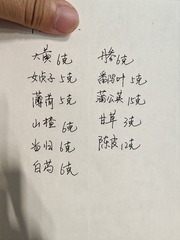 大黄 6克 丹参 6克
女贞子 5克 番泻叶 5克
薄荷 5克 蒲公英 15克
山楂 6克 甘草 3克
当归 6克 陈皮 12克
白芍 6克